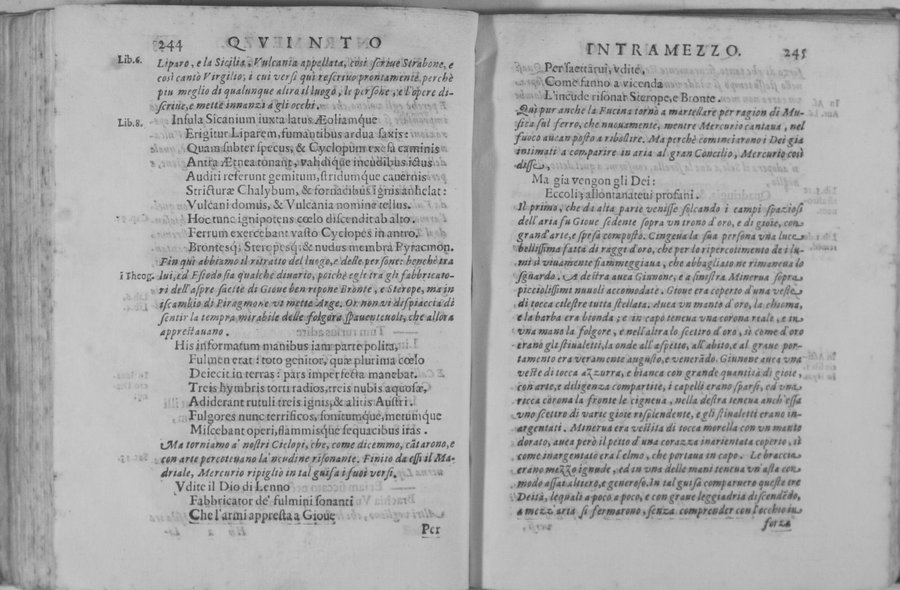 244 QVINTO
Lib.6. Liparo, e la Sicilia, Vulcania appellata, così scriue Strabone, e
così cantò Virgilio, i cui versi quì rescriuo prontamente perchè
piu meglio di qualunque altra il luogo, le persone, e l'opere di-
scriue, e mette innanzi a gli occhi.
Lib.8. Insula Sicanium iuxta latus Æoliamque
Erigitur Liparem, fumantibus ardua saxis:
Quam subter specus, & Cyclopum exesa caminis
Antra Ætnea tonant, validique incudibus ictus
Auditi referunt gemitum, stridunque cauernis
Stricturæ Chalybum, & fornacibus ignis anhelat:
Vulcani domus, & Vulcania nomine tellus.
Hoc tunc ignipotens cœlo discendit ab alto.
Ferrum exercebant vasto Cyclopes in antro.
Brontesq; Steropesq; & nudus membra Pyracmon.
Fin quì abbiamo il ritratto del luogo, e delle persone: benchè tra
i Theog. lui, ed Esiodo sia qualche diuario, poichè egli tra gli fabbricato-
ri dell'aspre saette di Gioue ben ripone Bronte, e Sterope, ma in
iscambio di Piragmone vi mette Arge. Or non vi dispiaccia di
sentir la tempra mirabile delle folgora spauenteuoli, che allora
apprestauano.
His informatum manibus iam parte polita,
Fulmen erat: toto genitor, quæ plurima cœlo
Deiecit in terras: pars imperfecta manebat.
Treis hymbris torti radios, treis nubis aquosæ,
Adiderant rutuli treis ignis, & alitis Austri.
Fulgores nunc terrificos, sonitumque, metumque
Miscebant operi, flammisque sequacibus iras.
Ma torniamo a' nostri Ciclopi, che, come dicemmo, cãtarono, e
con arte percoteuano la 'ncudine risonante. Finito da essi il Ma-
driale, Mercurio ripigliò in tal guisa i suoi versi,
Vdite il Dio di Lenno
Fabbricator de' fulmini sonanti
Che l'armi appresta a Gioue
Per
INTRAMEZZO. 245
Per saettarui, vdite,
Come fanno a vicenda
L'incude risonar Sterope, e Bronte.
Quì pur anche la Fucina tornò a martellare per ragion di Mu-
sica sul ferro, che nuouamente, mentre Mercurio cantaua, nel
fuoco aucan posto a ribollire. Ma perchè cominciarono i Dei gia
intimati a comparire in aria al gran Concilio, Mercurio così
disse,
Ma gia vengon gli Dei:
Eccoli; allontanateui profani.
Il primo, che di alta parte venisse solcando i campi spaziosi
dell'aria fu Gioue sedente sopra vn trono d'oro, e di gioie, con
grand'arte, e spesa composto. Cingeua la sua persona vna luce
bellissima fatta di raggi d'oro, che per lo ripercotimento de i lu-
mi sì viuamente fiammeggiaua, che abbagliato ne rimaneua lo
sguardo. A destra auea Giunone, e a sinistra Minerua sopra
picciolissimi nuuoli accomodate. Gioue era coperto d'vna veste
di tocca celestre tutta stellata. Auea vn manto d'oro, la chioma,
e la barba era bionda; e in capo teneua vna corona reale, e in
vna mano la folgore, e nell'altra lo scettro d'oro, sì come d'oro
erano gli stiualetti, la onde all'aspetto, all'abito, e al graue por-
tamento era veramente augusto, e venerãdo. Giunone auea vna
veste di tocca azzurra, e bianca con grande quantità di gioie,
con arte, e diligenza compartite, i capelli erano sparsi, ed vna
ricca corona la fronte le cigneua, nella destra teneua anch'essa
vno scettro di varie gioie risplendente, e gli stiualetti erano in-
argentati. Minerua era vestita di tocca morella con vn manto
dorato, auea però il petto d'vna corazza inarientata coperto, sì
come inargentato era l'elmo, che portaua in capo. Le braccia
erano mezzo ignude, ed in vna delle mani teneua vn'asta con
modo assai altiero, e generoso. In tal guisa comparuero queste tre
Deità, lequali a poco a poco, e con graue leggiadria discendẽdo,
a mezz'aria si fermarono, senza comprender con l'occhio in
forza